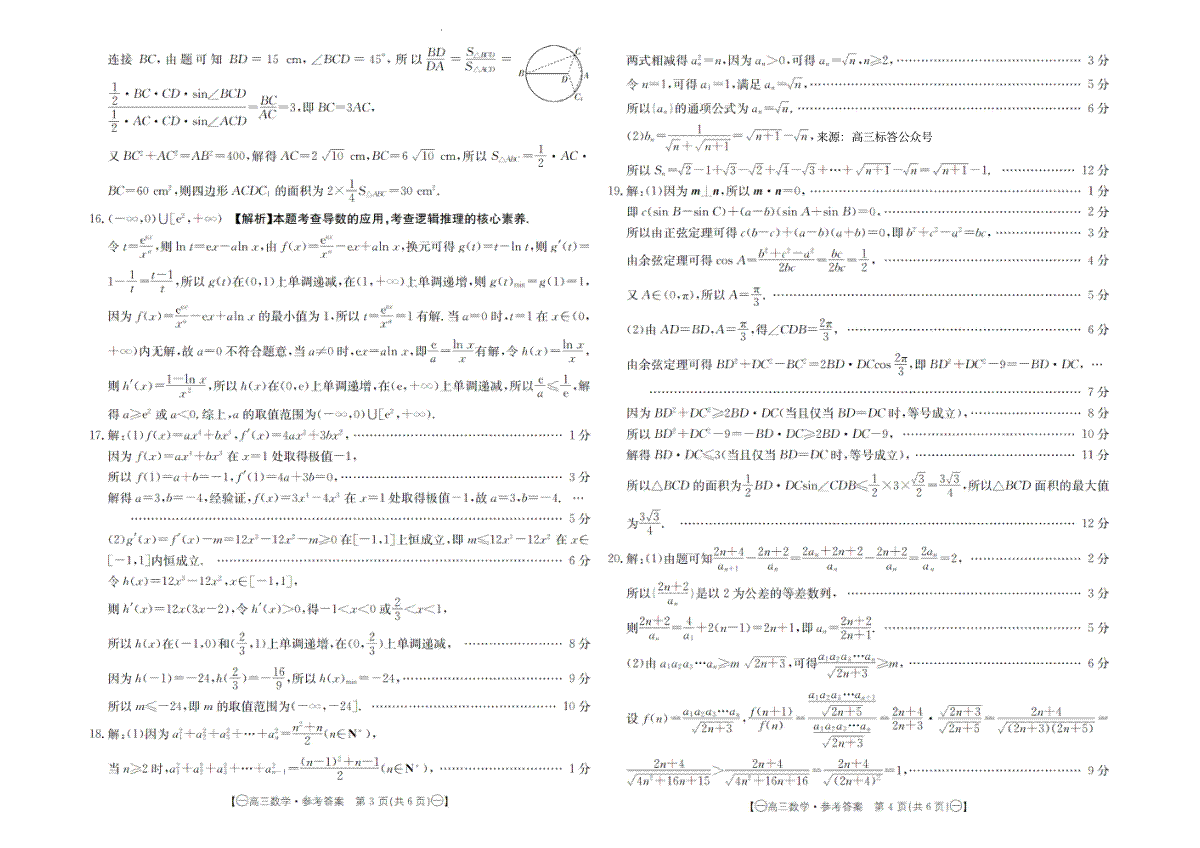 连接 BC,由题可知 BD=15 cm,∠BCD=45°,所以 BD/DA=S△BCD/S△ACD=
(1/2·BC·CD·sin∠BCD)/(1/2·AC·CD·sin∠ACD)=BC/AC=3,即 BC=3AC,
B D A C C₁
又 BC²+AC²=AB²=400,解得 AC=2√10 cm,BC=6√10 cm,所以 S△ABC=1/2·AC·
BC=60 cm²,则四边形 ACDC₁ 的面积为 2×1/4 S△ABC=30 cm².
16.(-∞,0)∪[e²,+∞) 【解析】本题考查导数的应用,考查逻辑推理的核心素养.
令 t=e^(ex)/x^a,则 ln t=ex-aln x,由 f(x)=e^(ex)/x^a-ex+aln x,换元可得 g(t)=t-ln t,则 g′(t)=
1-1/t=(t-1)/t,所以 g(t)在(0,1)上单调递减,在(1,+∞)上单调递增,则 g(t)min=g(1)=1,
因为 f(x)=e^(ex)/x^a-ex+aln x 的最小值为 1,所以 t=e^(ex)/x^a=1 有解.当 a=0 时,t=1 在 x∈(0,
+∞)内无解,故 a=0 不符合题意,当 a≠0 时,ex=aln x,即 e/a=ln x/x 有解,令 h(x)=ln x/x,
则 h′(x)=(1-ln x)/x²,所以 h(x)在(0,e)上单调递增,在(e,+∞)上单调递减,所以 e/a≤1/e,解
得 a≥e² 或 a<0.综上,a 的取值范围为(-∞,0)∪[e²,+∞).
17.解:(1)f(x)=ax⁴+bx³,f′(x)=4ax³+3bx², …… 1 分
因为 f(x)=ax⁴+bx³ 在 x=1 处取得极值-1,
所以 f(1)=a+b=-1,f′(1)=4a+3b=0, …… 3 分
解得 a=3,b=-4,经验证,f(x)=3x⁴-4x³ 在 x=1 处取得极值-1,故 a=3,b=-4. …
…… 5 分
(2)g′(x)=f′(x)-m=12x³-12x²-m≥0 在[-1,1]上恒成立,即 m≤12x³-12x² 在 x∈
[-1,1]内恒成立. …… 6 分
令 h(x)=12x³-12x²,x∈[-1,1],
则 h′(x)=12x(3x-2),令 h′(x)>0,得-1<x<0 或 2/3<x<1,
所以 h(x)在(-1,0)和(2/3,1)上单调递增,在(0,2/3)上单调递减, …… 8 分
因为 h(-1)=-24,h(2/3)=-16/9,所以 h(x)min=-24, …… 9 分
所以 m≤-24,即 m 的取值范围为(-∞,-24]. …… 10 分
18.解:(1)因为 a₁²+a₂²+a₃²+…+aₙ²=(n²+n)/2(n∈N⁺),
当 n≥2 时,a₁²+a₂²+a₃²+…+aₙ₋₁²=((n-1)²+n-1)/2(n∈N⁺), …… 1 分
【㊀高三数学·参考答案 第 3 页(共 6 页)㊀】
两式相减得 aₙ²=n,因为 aₙ>0,可得 aₙ=√n,n≥2, …… 3 分
令 n=1,可得 a₁=1,满足 aₙ=√n, …… 5 分
所以{aₙ}的通项公式为 aₙ=√n. …… 6 分
(2)bₙ=1/(√n+√(n+1))=√(n+1)-√n, 来源:高三标答公众号
所以 Sₙ=√2-1+√3-√2+√4-√3+…+√(n+1)-√n=√(n+1)-1. …… 12 分
19.解:(1)因为 m⊥n,所以 m·n=0, …… 1 分
即 c(sin B-sin C)+(a-b)(sin A+sin B)=0, …… 2 分
所以由正弦定理可得 c(b-c)+(a-b)(a+b)=0,即 b²+c²-a²=bc, …… 3 分
由余弦定理可得 cos A=(b²+c²-a²)/2bc=bc/2bc=1/2, …… 4 分
又 A∈(0,π),所以 A=π/3. …… 5 分
(2)由 AD=BD,A=π/3,得∠CDB=2π/3, …… 6 分
由余弦定理可得 BD²+DC²-BC²=2BD·DCcos 2π/3,即 BD²+DC²-9=-BD·DC, …
…… 7 分
因为 BD²+DC²≥2BD·DC(当且仅当 BD=DC 时,等号成立), …… 8 分
所以 BD²+DC²-9=-BD·DC≥2BD·DC-9, …… 10 分
解得 BD·DC≤3(当且仅当 BD=DC 时,等号成立), …… 11 分
所以△BCD 的面积为 1/2 BD·DCsin∠CDB≤1/2×3×√3/2=3√3/4,所以△BCD 面积的最大值
为 3√3/4. …… 12 分
20.解:(1)由题可知 (2n+4)/aₙ₊₁-(2n+2)/aₙ=(2aₙ+2n+2)/aₙ-(2n+2)/aₙ=2aₙ/aₙ=2, …… 2 分
所以{(2n+2)/aₙ}是以 2 为公差的等差数列, …… 3 分
则 (2n+2)/aₙ=4/a₁+2(n-1)=2n+1,即 aₙ=(2n+2)/(2n+1). …… 5 分
(2)由 a₁a₂a₃…aₙ≥m√(2n+3),可得 a₁a₂a₃…aₙ/√(2n+3)≥m, …… 6 分
设 f(n)=a₁a₂a₃…aₙ/√(2n+3),f(n+1)/f(n)=(a₁a₂a₃…aₙ₊₁/√(2n+5))/(a₁a₂a₃…aₙ/√(2n+3))=(2n+4)/(2n+3)·√(2n+3)/√(2n+5)=(2n+4)/√((2n+3)(2n+5))=
(2n+4)/√(4n²+16n+15)>(2n+4)/√(4n²+16n+16)=(2n+4)/√((2n+4)²)=1, …… 9 分
【㊀高三数学·参考答案 第 4 页(共 6 页)㊀】